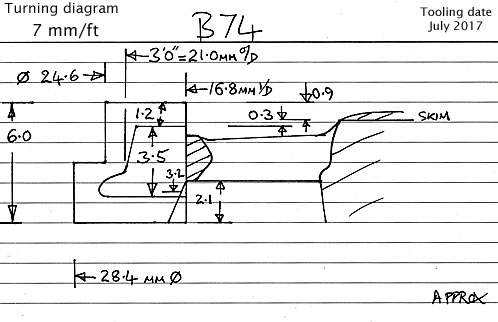 Turning diagram
7 mm/ft
B74
Tooling date
July 2017
3'0"=21.0MM O/D
Ø 24.6
16.8MM I/D
0.9
1.2
0.3
SKIM
6.0
3.5
3.2
2.1
28.4 MM Ø
APPROX